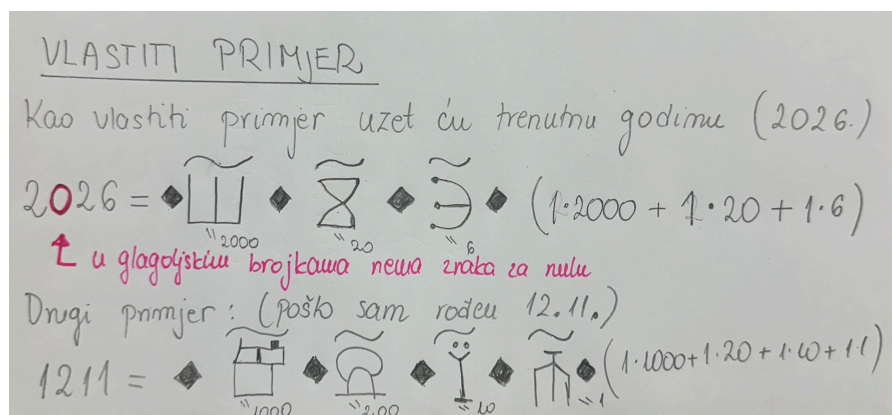 VLASTITI PRIMJER
Kao vlastiti primjer uzet ću trenutnu godinu (2026.)
2026 = ⬥ Ⱎ ⬥ Ⰻ ⬥ Ⰵ ⬥ (1·2000 + 1·20 + 1·6)
"2000 "20 "6
u glagoljskim brojkama nema znaka za nulu
Drugi primjer: (pošto sam rođen 12.11.)
1211 = ⬥ ⬥ ⬥ Ⰰ ⬥ (1·1000+1·20+1·10+1·1)
"1000 "200 "10 "1